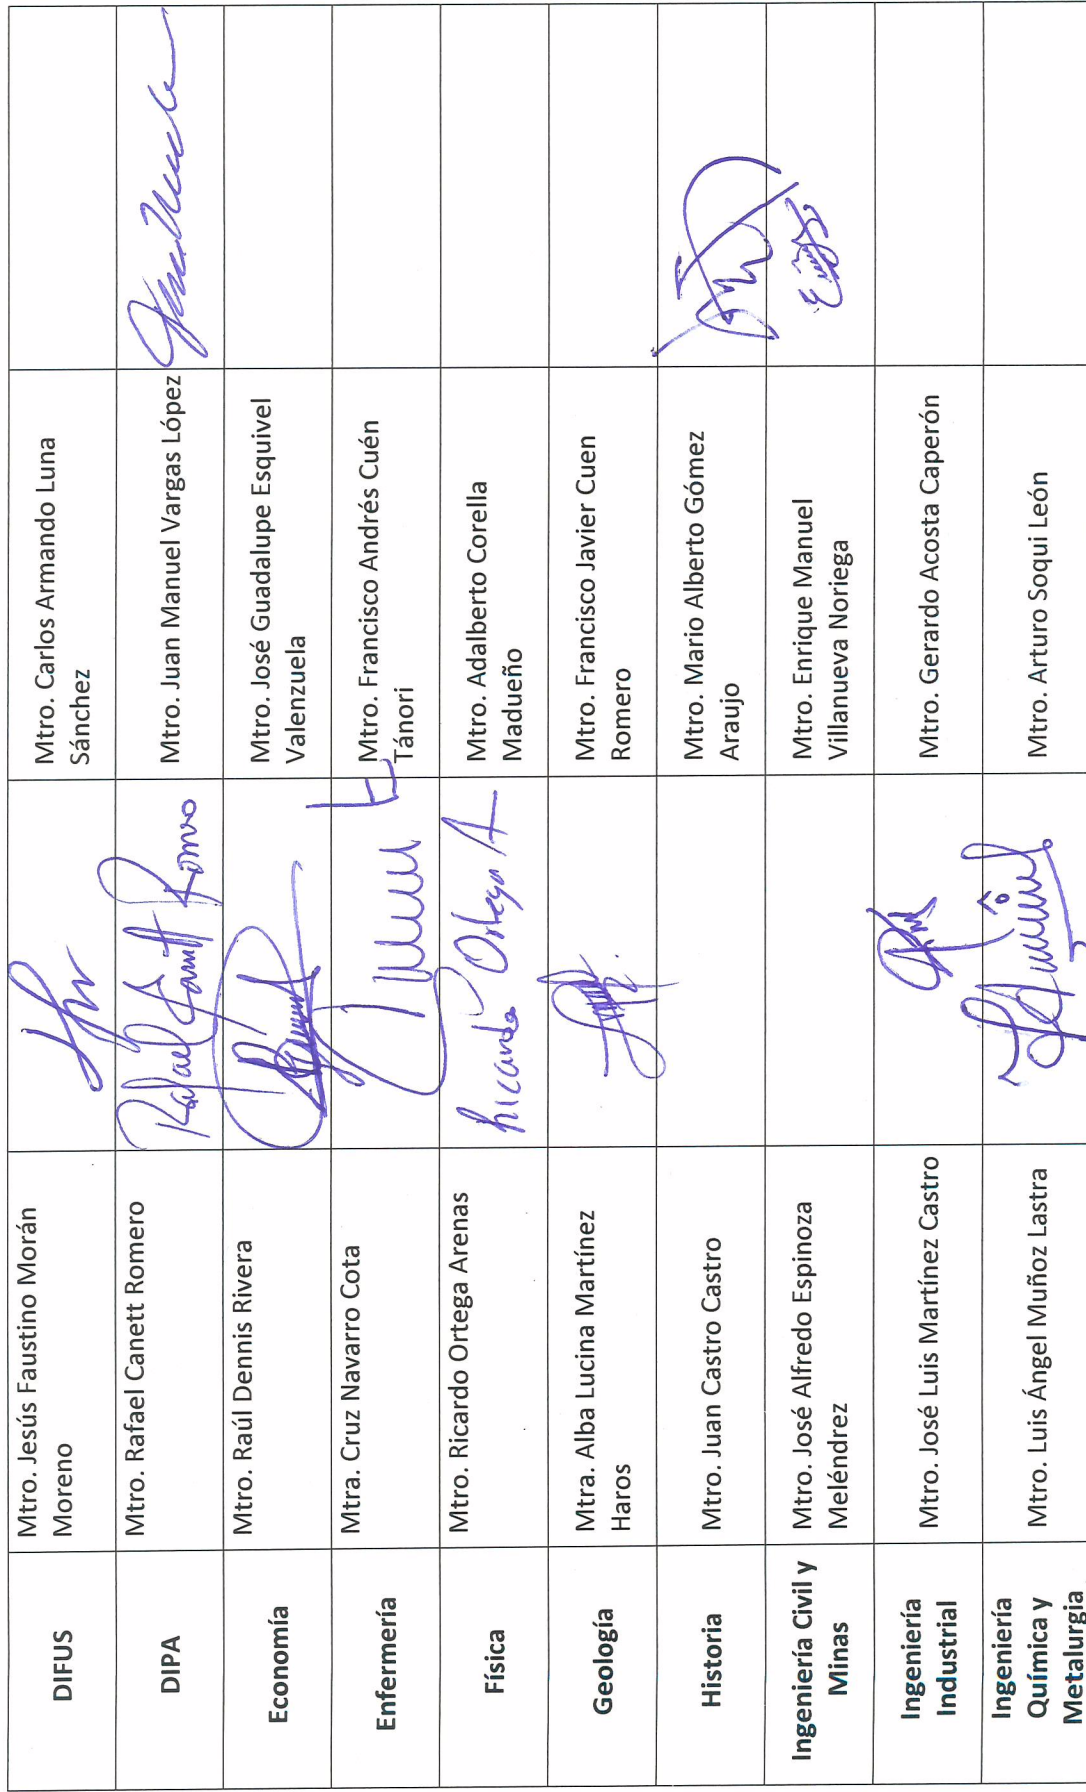 DIFUS
Mtro. Jesús Faustino Morán
Moreno
Mtro. Carlos Armando Luna
Sánchez
DIPA
Mtro. Rafael Canett Romero
Rafael Canett Romro
Mtro. Juan Manuel Vargas López
Economía
Mtro. Raúl Dennis Rivera
Mtro. José Guadalupe Esquivel
Valenzuela
Enfermería
Mtra. Cruz Navarro Cota
Mtro. Francisco Andrés Cuén
Tánori
Física
Mtro. Ricardo Ortega Arenas
Ricardo Ortega A
Mtro. Adalberto Corella
Madueño
Geología
Mtra. Alba Lucina Martínez
Haros
Mtro. Francisco Javier Cuen
Romero
Historia
Mtro. Juan Castro Castro
Mtro. Mario Alberto Gómez
Araujo
Ingeniería Civil y
Minas
Mtro. José Alfredo Espinoza
Meléndrez
Mtro. Enrique Manuel
Villanueva Noriega
Ingeniería
Industrial
Mtro. José Luis Martínez Castro
Mtro. Gerardo Acosta Caperón
Ingeniería
Química y
Metalurgia
Mtro. Luis Ángel Muñoz Lastra
Mtro. Arturo Soqui León